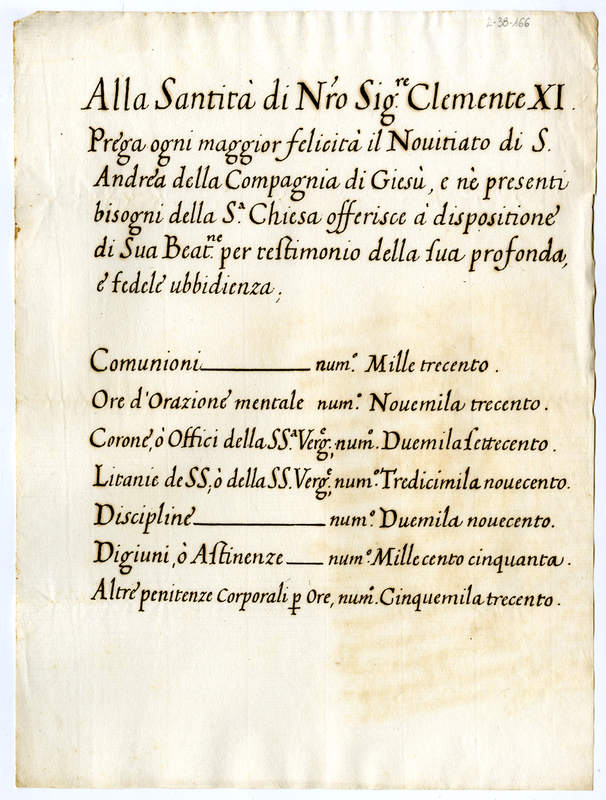 2-38-166
Alla Santità di Nr̃o Sig.re Clemente XI.
Prega ogni maggior felicità il Nouitiato di S.
Andrea della Compagnia di Giesù, e nè presenti
bisogni della S.a Chiesa offerisce à dispositione
di Sua Beat.ne per teſtimonio della ſua profonda,
e fedele ubbidienza;
Comunioni num.o Mille trecento.
Ore d'Orazione mentale num.o Nouemila trecento.
Corone, ò Offici della SS.a Verg.e, num.o Duemila ſettecento.
Litanie de SS, ò della SS. Verg.e, num.o Tredicimila nouecento.
Discipline num.o Duemila nouecento.
Digiuni, ò Aſtinenze num.o Mille cento cinquanta.
Altre penitenze Corporali ꝑ Ore, num.o Cinquemila trecento.